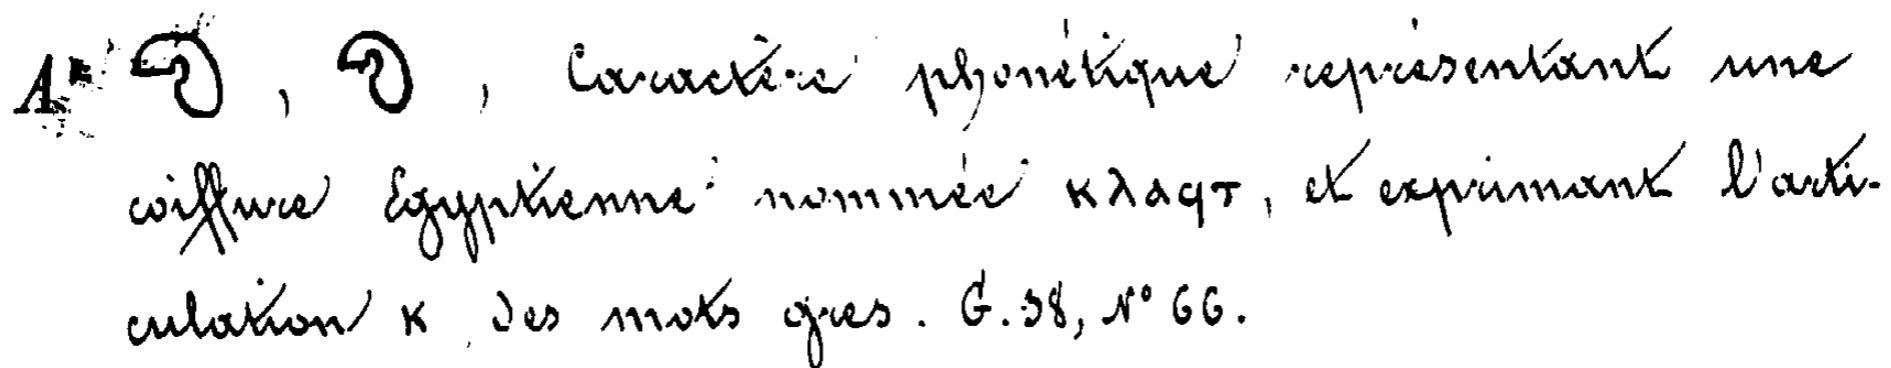 A. , , Caractère phonétique représentant une
coiffure Egyptienne nommée ⲕⲗⲁϥⲧ, et exprimant l'arti-
culation K des mots grecs. G. 38, N° 66.